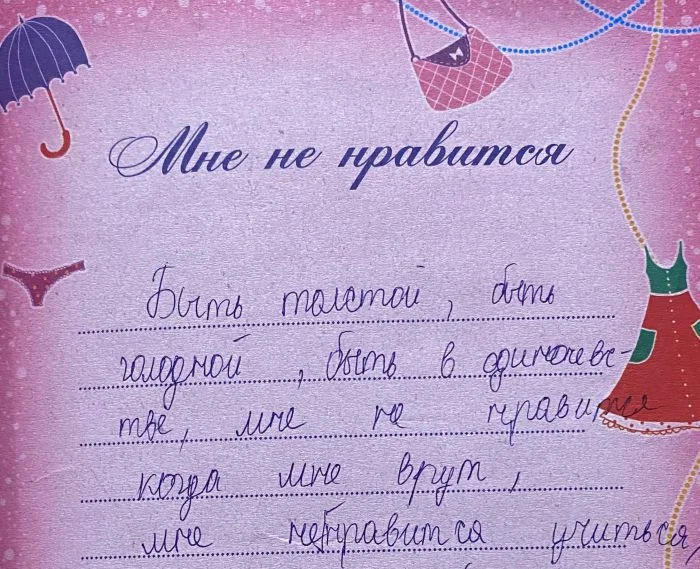 Мне не нравится
Быть толстой, быть
голодной, быть в одиночевс-
тве, мне не нравится
когда мне врут,
мне не нравится учиться,